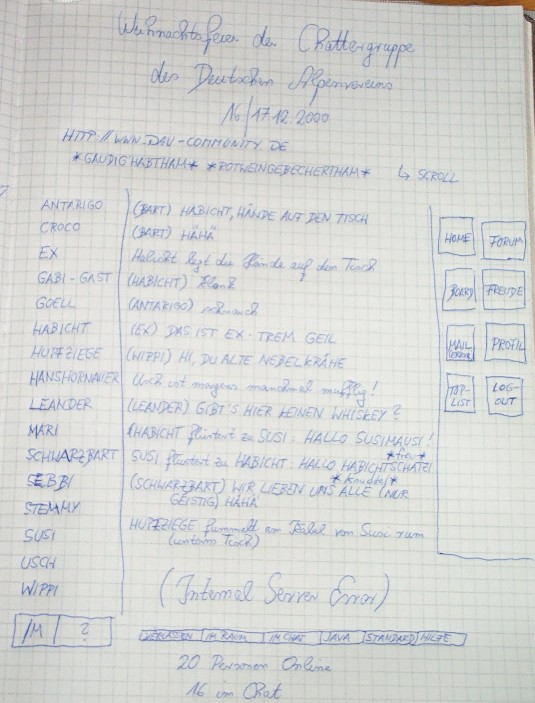 Weihnachtsfeier der Chattergruppe
des Deutschen Alpenvereins
16/17.12.2000
HTTP://WWW.DAV-COMMUNITY.DE
*GAUDIG'HABTHAM* *ROTWEINGEBECHERTHAM* ↳ SCROLL
ANTARIGO (BART) HABICHT, HÄNDE AUF DEN TISCH
CROCO (BART) HÄHÄ
EX Habicht legt die Hände auf den Tisch
GABI-GAST (HABICHT)
GOELL (ANTARIGO) schmauch
HABICHT (EX) DAS IST EX-TREM GEIL
HUPFZIEGE (WIPPI) HI, DU ALTE NEBELKRÄHE
HANSHORNAUER Usch ist morgens manchmal muffig!
LEANDER (LEANDER) GIBT'S HIER KEINEN WHISKEY?
MARI (HABICHT flüstert zu SUSI: HALLO SUSIMAUSI!
*freu*
SCHWARZBART SUSI flüstert zu HABICHT: HALLO HABICHTSCHATZI
*knuddel*
SEBBI (SCHWARZBART) WIR LIEBEN UNS ALLE (NUR
GEISTIG) HÄHÄ
STEMMY
SUSI HUPFZIEGE fummelt am Kabel von Susi rum
(unterm Tisch)
USCH
WIPPI
(Internal Server Error)
HOME FORUM
BOARD FREUDE
MAIL (ERROR) PROFIL
TOP-LIST LOG-OUT
/M ?
VERLASSEN IM RAUM IM CHAT JAVA STANDARD HILFE
20 Personen Online
16 im Chat